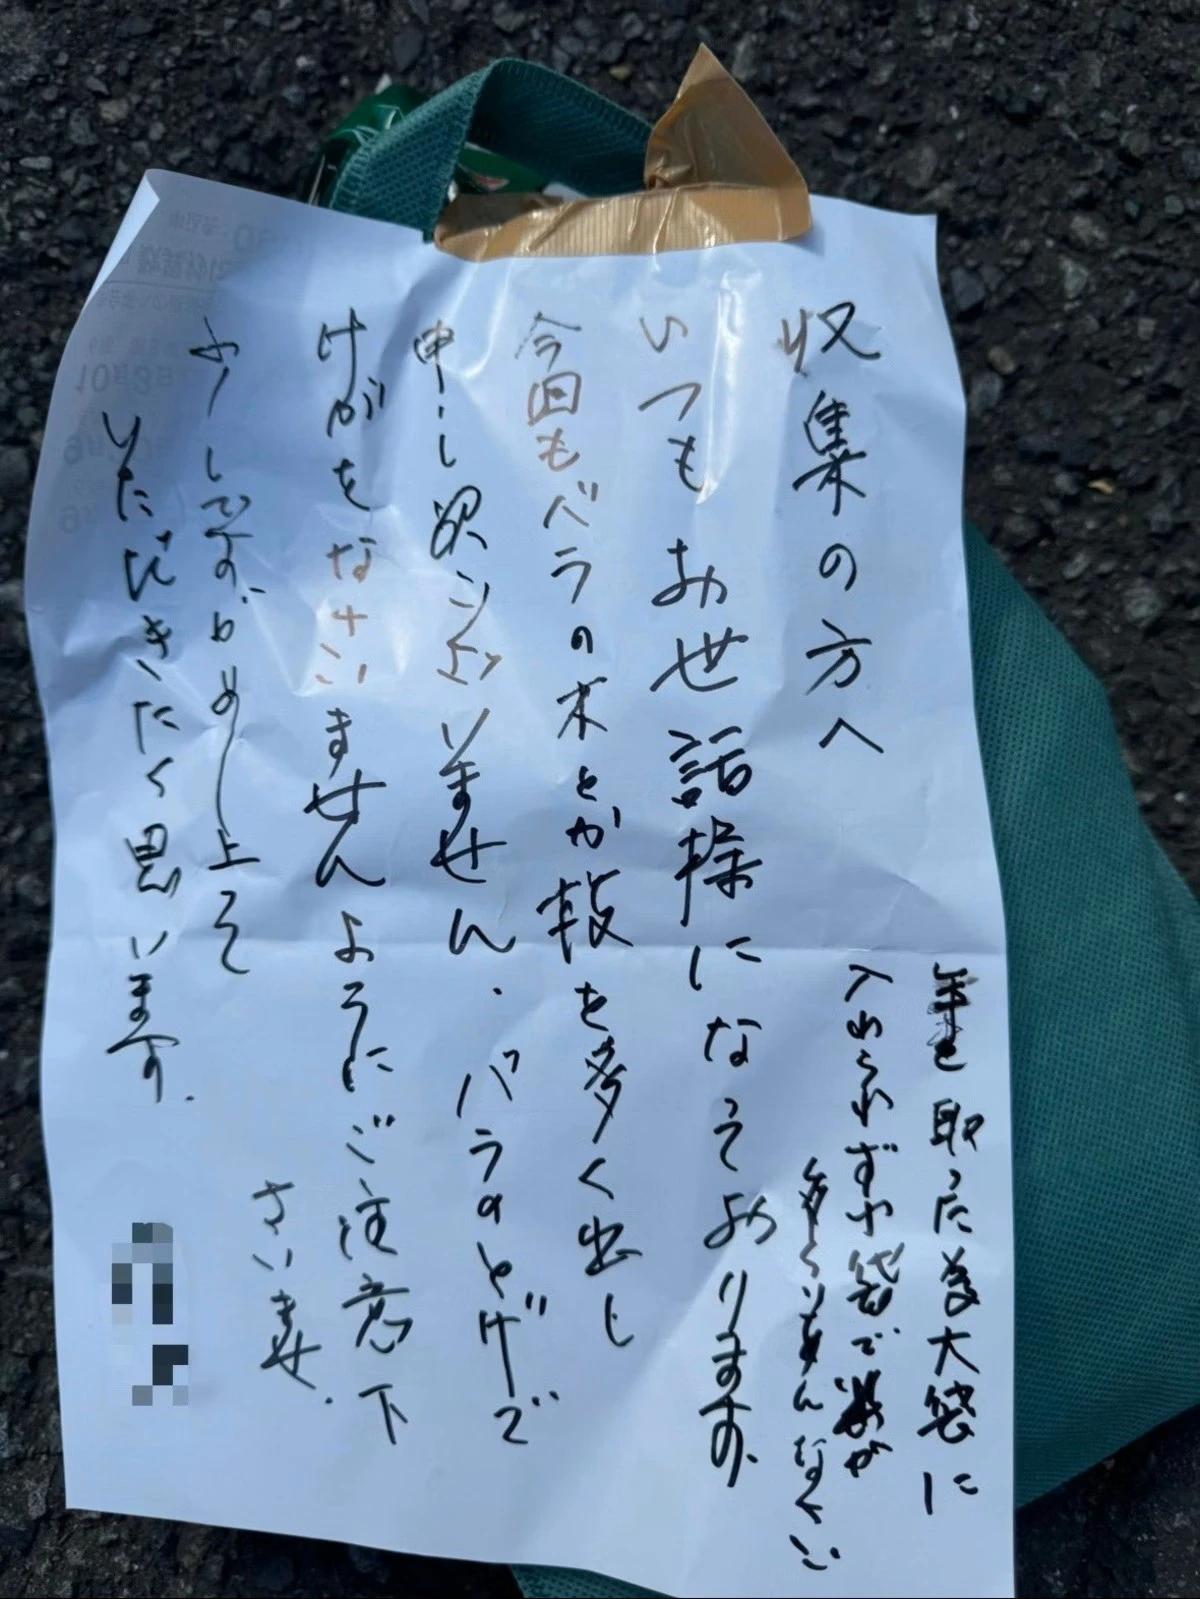 収集の方へ
いつもお世話様になっております、
今回もバラの木とか枝を多く出し
申し訳ございません、バラのとげで
けがをなさいませんようにご注意下
さいませ、
少しですがめし上って
いただきたく思います、
取った為大袋に
入れられず小袋で数が
多くりごめんなさい